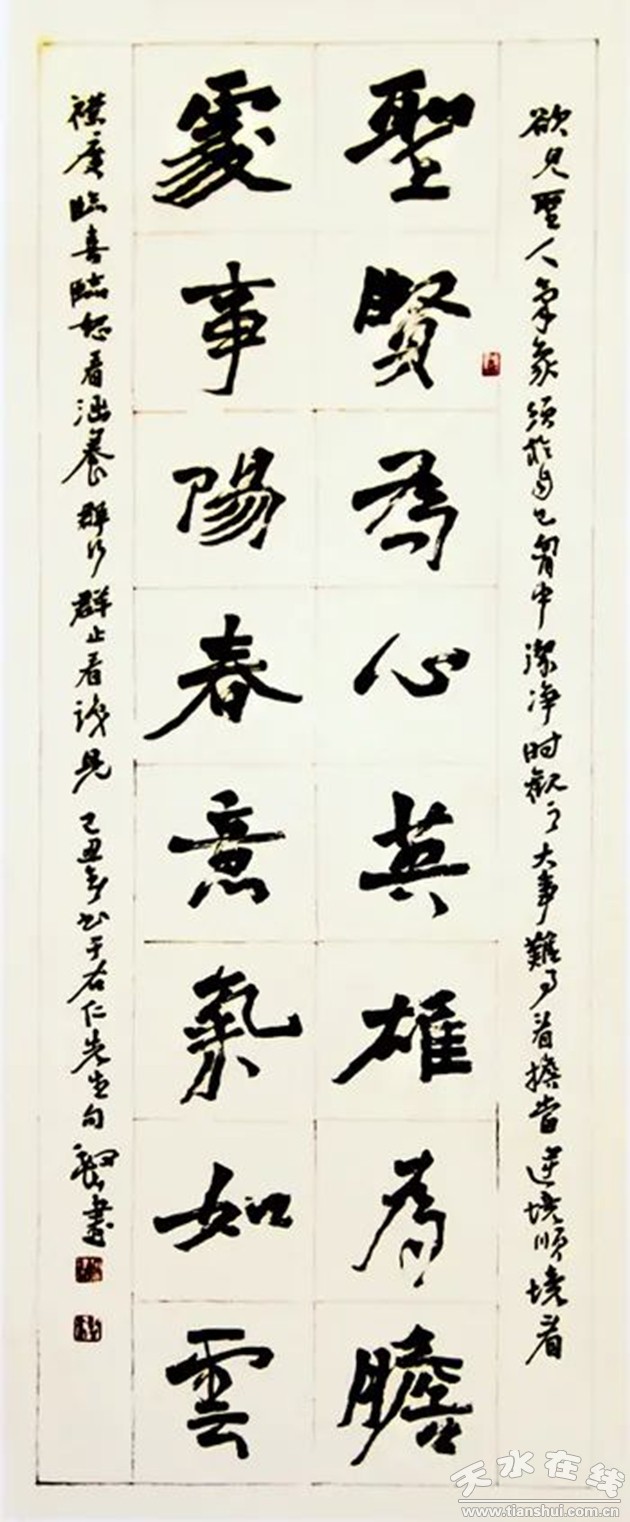 欲見聖人氣象須於自己胷中潔净时觀之大事難事看擔當逆境順境看
聖賢為心英雄為膽
處事陽春意氣如雲
襟度臨喜臨怒看涵養群行群止看識見 己丑年書于右仁先生句 書
天水在线
www.tianshui.com.cn